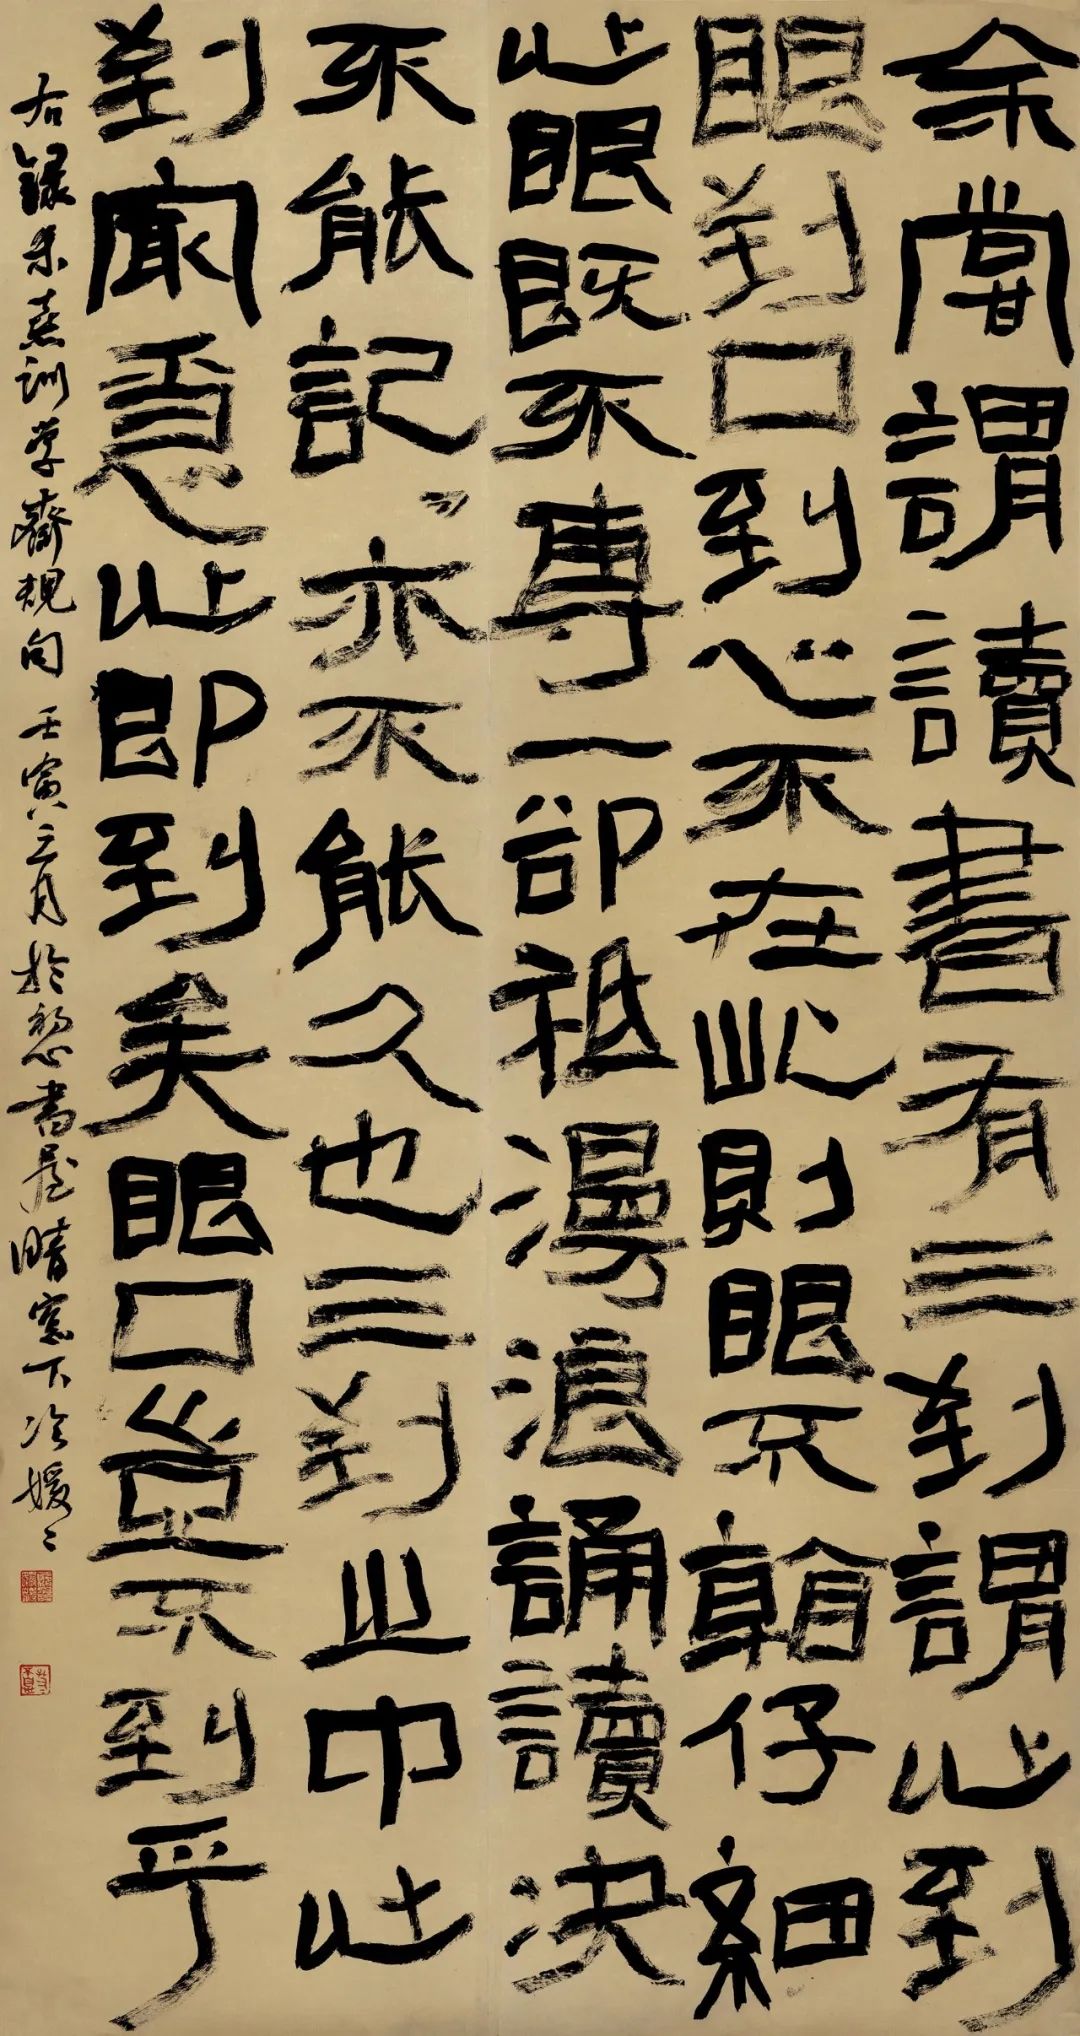 余嘗謂讀書有三到謂心到
眼到口到心不在此則眼不看仔細
心眼既不專一卻祇漫浪誦讀決
不能記記亦不能久也三到之中心
到最急心既到矣眼口豈不到乎
右錄朱熹訓學齋規句 壬寅三月於 書屋晴窗下冷媛媛